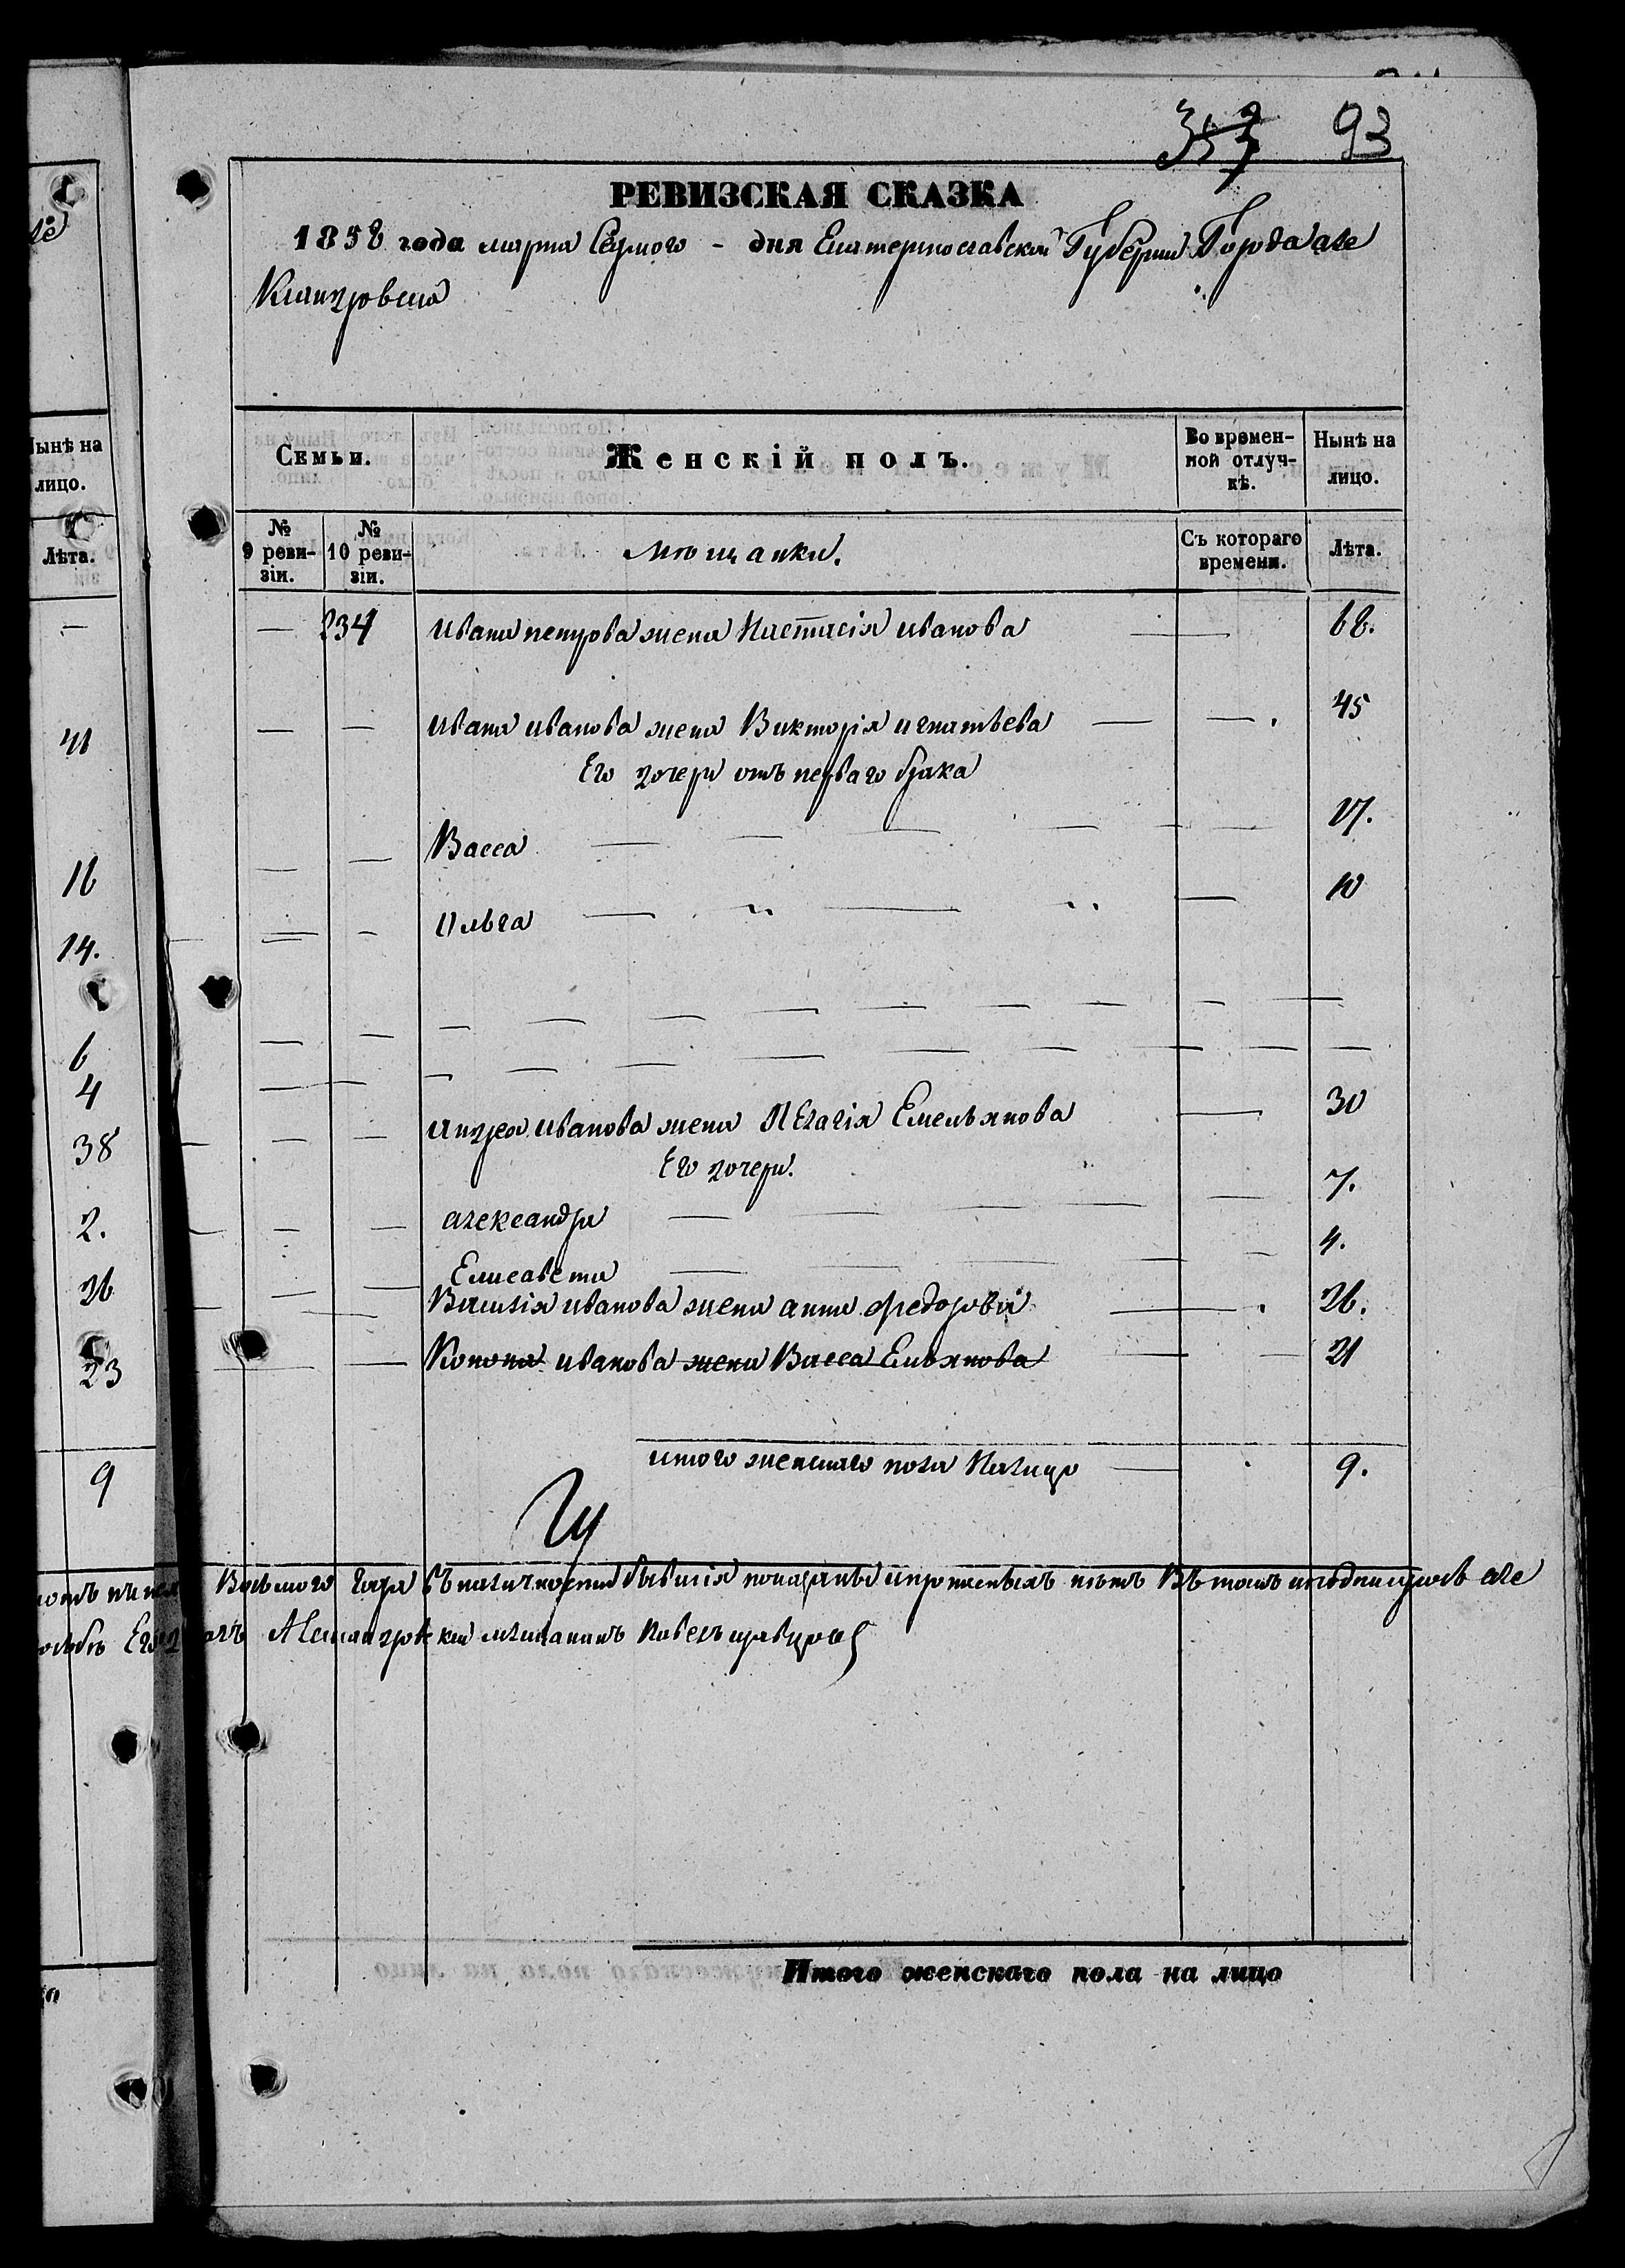 357 93
РЕВИЗСКАЯ СКАЗКА
1858 года марта Седмого - дня Екатеринославской Губернии Города Але
ксандровска
Нынѣ на
лицо.
Лѣта.
Семьи.
Женскій полъ.
Во времен-
ной отлуч-
кѣ.
Нынѣ на
лицо.
№
9 реви-
зіи.
№
10 реви-
зіи.
Мѣщанки.
Съ котораго
времени.
Лѣта.
— 234 Ивана петрова жена Настасія иванова — 68.
41
— — Ивана иванова жена Викторія игнатьева — — 45
Его дочери отъ перваго брака
— — Васса — — — — — 17.
16
— — Ольга — „ — „ — 10
14.
6
4
— — Андрея иванова жена Пелагія Емельянова — 30
38
Его дочери.
— — александра — — — — 7.
2.
Елисавета — — — — — 4.
26
— — Василія иванова жена анна федорова — 26.
— — Конона иванова жена Васса Ельянова — — 21
23
итого женскаго пола Налицо — 9.
9
Восьмого года въ наличности бывшія показанѣ и прописныхъ нѣтъ Въ томъ и подписуюсь але
Александровскій мѣщанинъ Павелъ
Итого женскаго пола на лицо